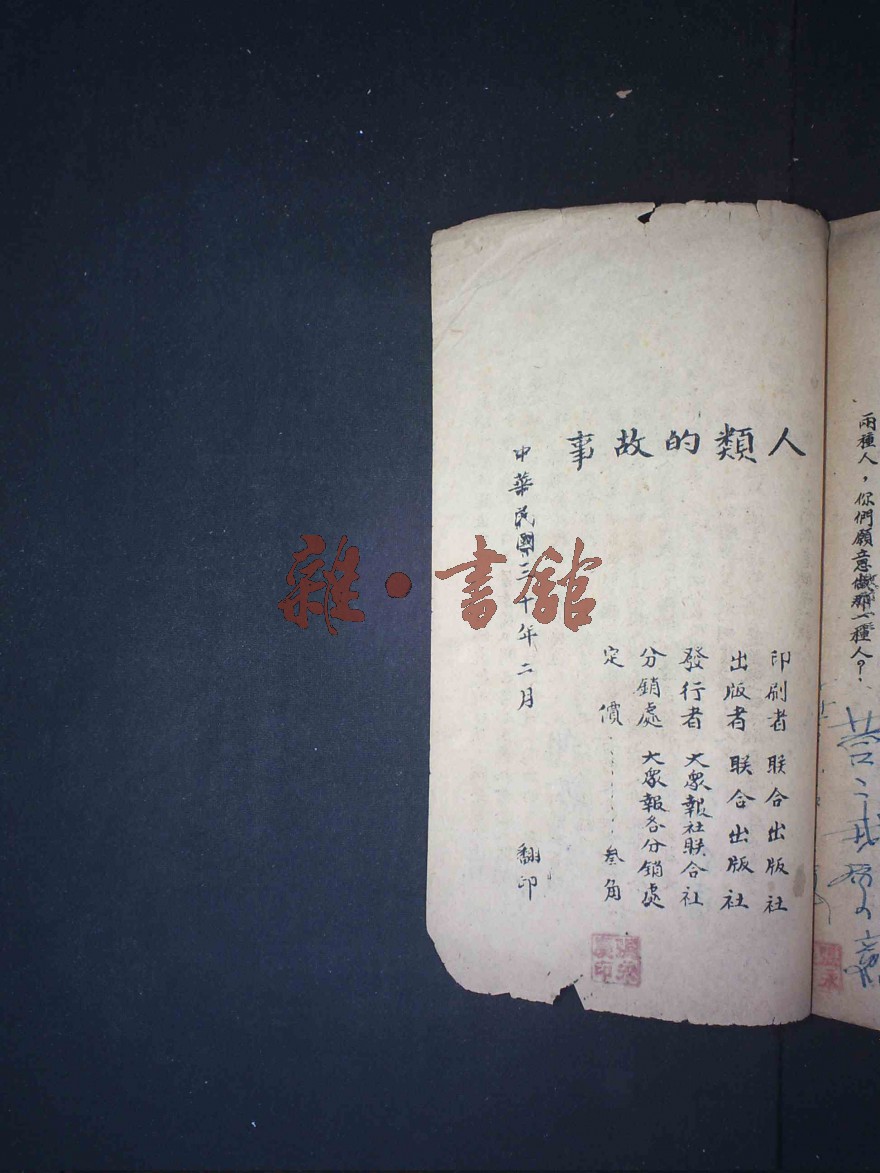 兩種人，你們願意做那一種人？
人類的故事
印刷者 联合出版社
出版者 联合出版社
發行者 大衆報社联合社
分銷處 大衆報各分銷處
定價………叁角
中華民國三十年二月 翻印
雜·書舘